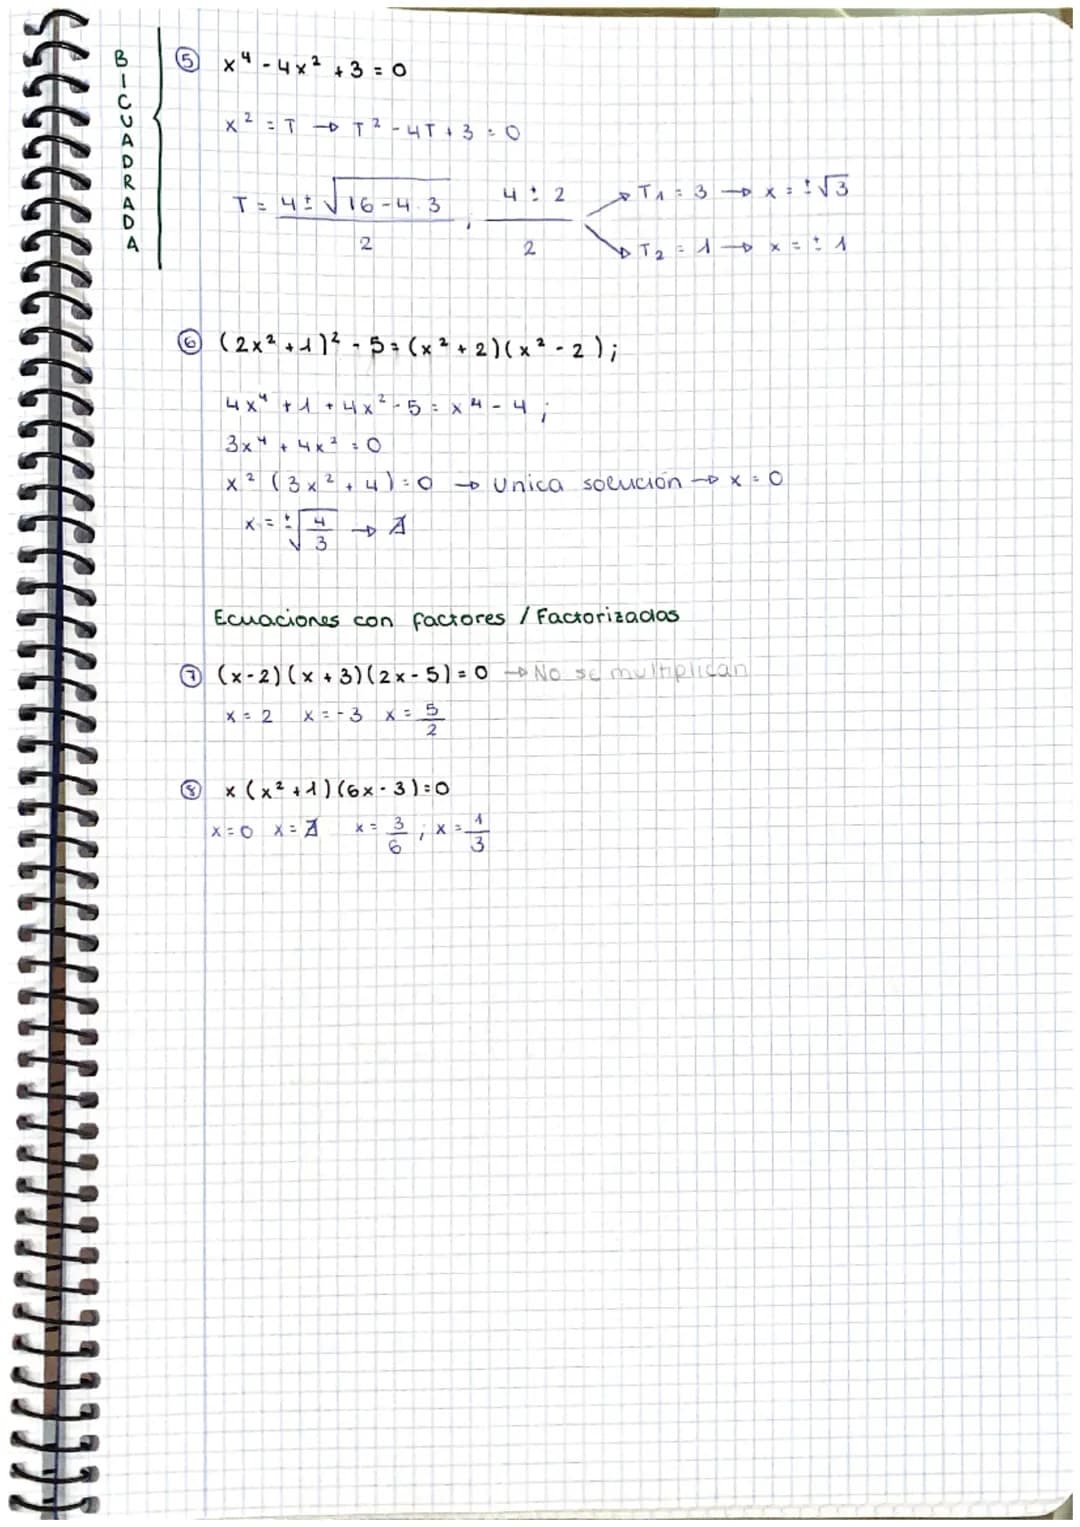 BICUADRADA
⑤ x⁴ - 4x² + 3 = 0
x² = T → T² - 4T + 3 = 0
T = (4 ± √(16 - 4 · 3))/2 ; (4 ± 2)/2
→ T₁ = 3 → x = ±√3
→ T₂ = 1 → x = ± 1
⑥ (2x² + 1)² - 5 = (x² + 2)(x² - 2);
4x⁴ + 1 + 4x² - 5 = x⁴ - 4 ;
3x⁴ + 4x² = 0
x² (3x² + 4) = 0 → Unica solución → x = 0
x = ±√(4/3) → ∄
Ecuaciones con factores / Factorizadas
⑦ (x - 2)(x + 3)(2x - 5) = 0 → No se multiplican
x = 2 x = -3 x = 5/2
⑧ x (x² + 1)(6x - 3) = 0
x = 0 x = ∄ x = 3/6 ; x = 1/3